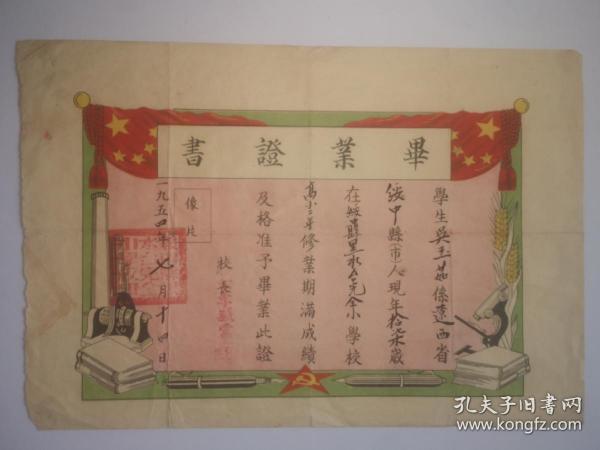 畢業證書
學生吳玉茹係遼西省
綏中縣(市)人現年拾柒歲
在綏中縣 完全小學校
高小 修業期滿成績
及格准予畢業此證
校長
像片
一九五四年七月十四日
孔夫子旧书网
www.kongfz.com